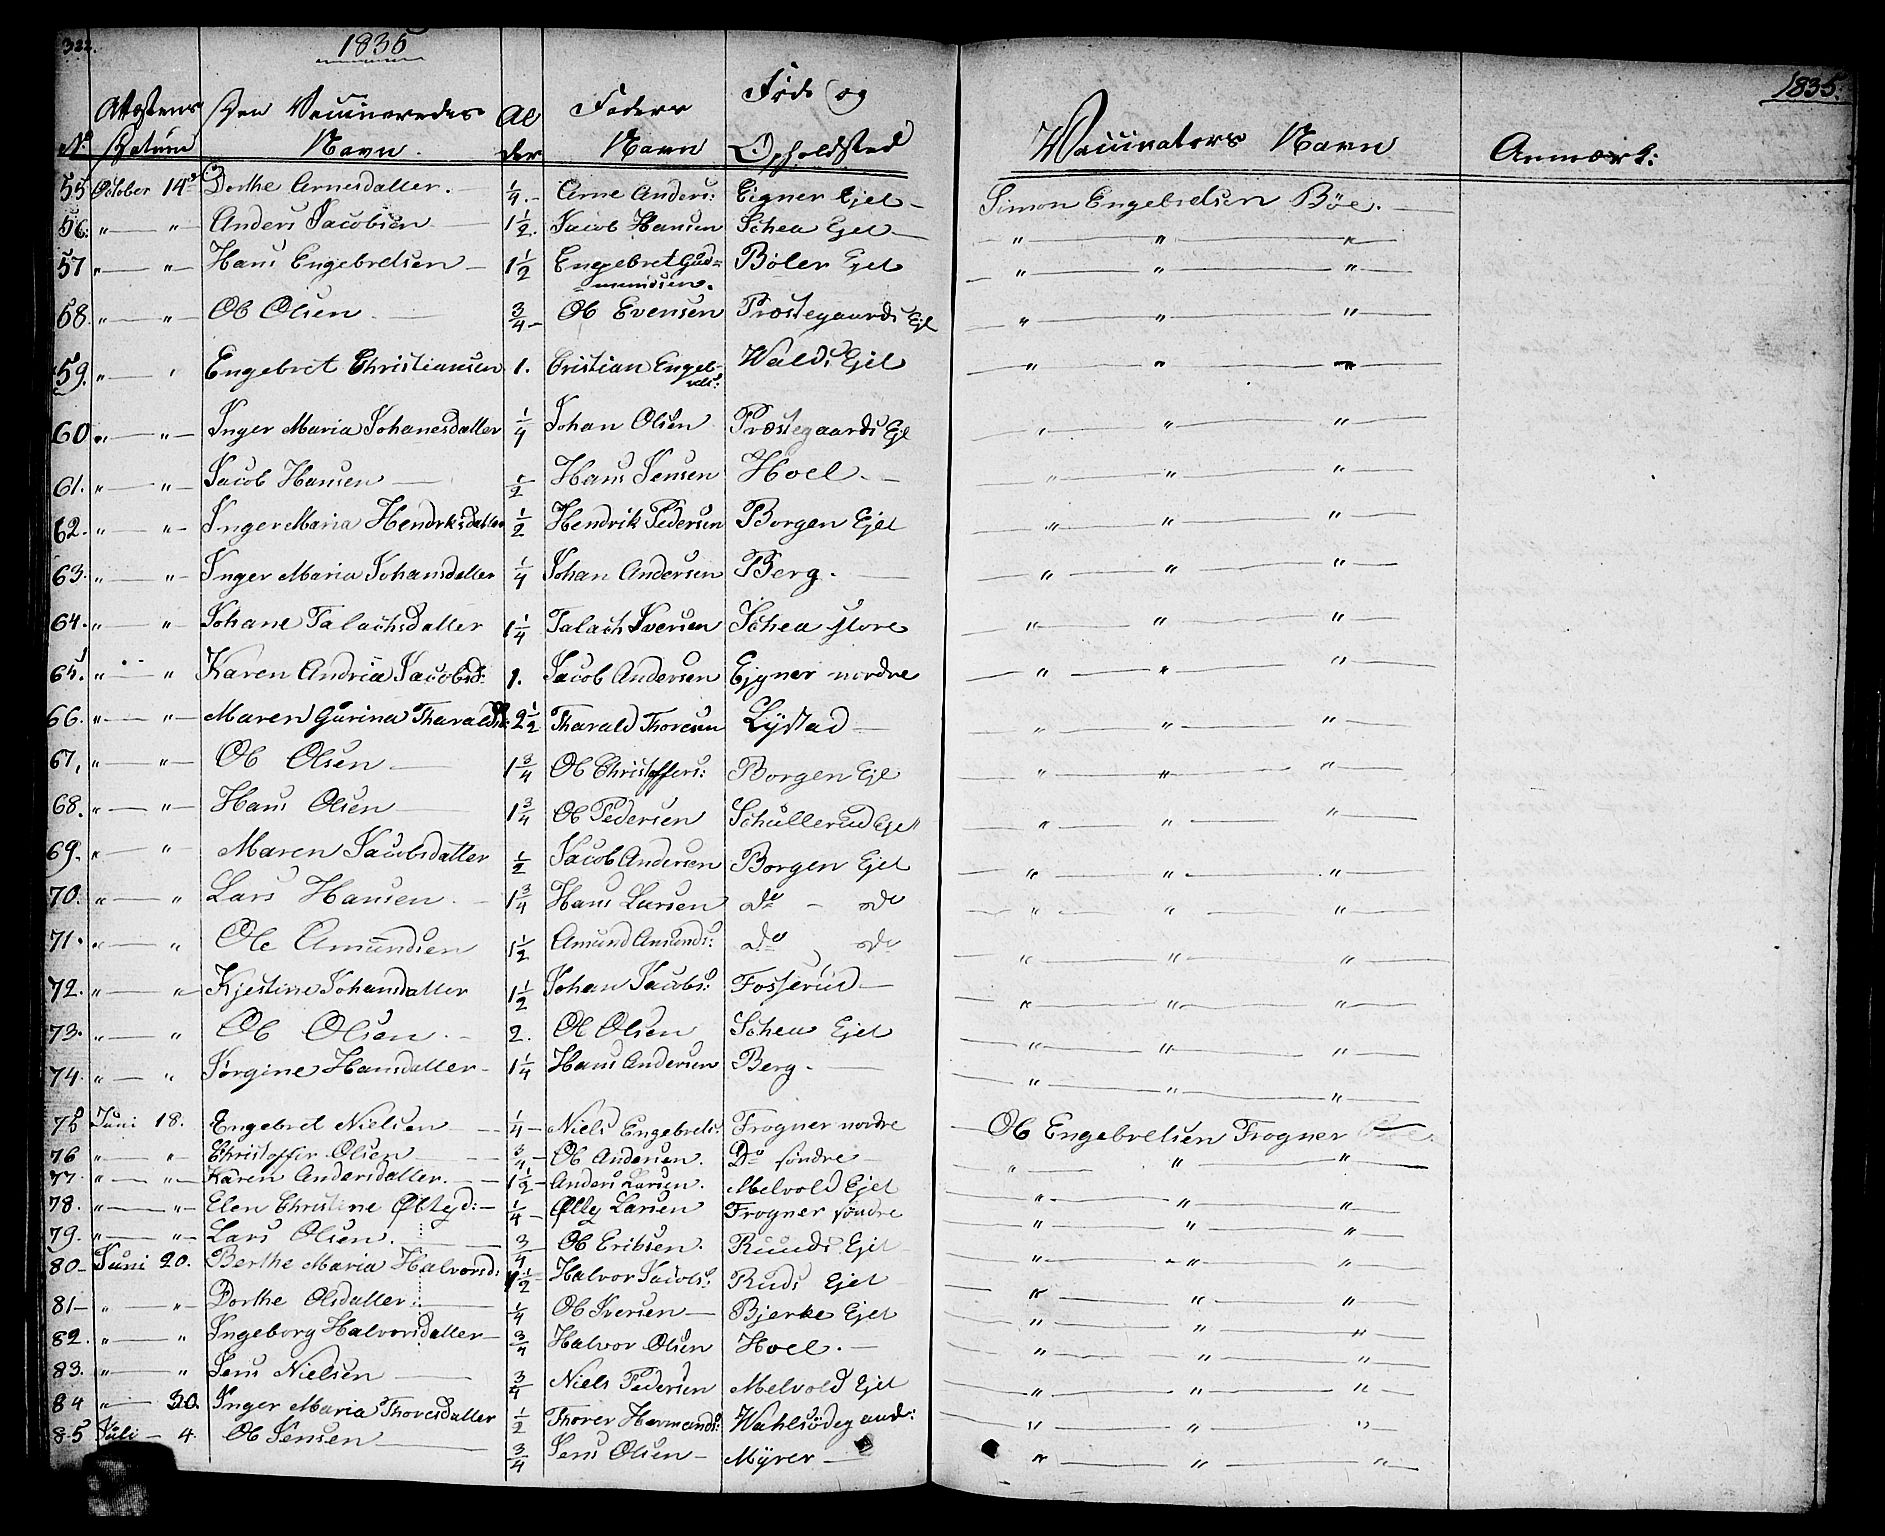 322. 1835 1835.
No. Attestens Datum Den Vaccineredes Navn. Alder Faders Navn Føde og Opholdsted Vaccinators Navn Anmærk:
55 October 14de Dorthe Arnesdatter. — 1/4. – Arne Anders: Eigner Ejet – Simon Engebretsen Bøe. —
56. " — " Anders Jacobsen — 1 1/2. Jacob Hansen Schea Ejet — " — " — "
57 " — " Hans Engebretsen — 1 1/2 Engebret Gud=mundsen. Bøler Ejet " — " — "
58. " — " Ole Olsen — 3/4 – Ole Evensen Præstegaards Ejl " — " — "
59. " — " Engebret Christiansen 1. Cristian Engebrets: Walds Ejet " — " — "
60 " — " – Inger Maria Johanesdatter 1/4 Johan Olsen Præstegaards Ejl " — " — "
61. " — " – Jacob Hansen — 1/2 Hans Jensen Hoel. – " — " — "
62. " — " Inger Maria Hendriksdatter 1/2 Hendrik Pedersen Borgen Ejet " — " — "
63. " — " – Inger Maria Johansdatter 1/4 Johan Andersen Berg. — " — " — "
64. " — " Johane Talachsdatter 1 1/4 Talach Iversen Schea store " — " — "
65. " — " Karen Andria Jacobsd: 1. Jacob Andersen Ejgner nordre " — " — "
66. " — " – Maren Gurina Tharaldsd: 2 1/2 Tharald Thoresen Lystad — " — " — "
67. " — " – Ole Olsen — 1 3/4 Ole Christoffers: Borgen Ejl " — " — "
68. " — " – Hans Olsen — 1 3/4 Ole Pedersen Schullerud Ejet " — " — "
69. " — " Maren Jacobsdatter 1/2 Jacob Andersen Borgen Ejet " — " — "
70. " — " Lars Hansen. – 1 3/4 Hans Larsen do – do " — " — "
71. " — " Ole Amundsen 1 1/2 Amund Amunds: do do " — " — "
72. " — " – Kjestine Johansdatter 1 1/2 Johan Jacobs: Fosserud — " — " — "
73. " — " Ole Olsen. – 2. Ole Olsen Schea Ejet " — " — "
74. " — " Jørgine Hansdatter – 1 1/4 Hans Andersen Berg. — " — " — "
75 Juni 18. Engebret Nielsen — 1/4 – Niels Engebrets: Frogner nordre Ole Engebretsen Frogner
76 " — " Christoffer Olsen — 3/4 – Ole Andersen. Do søndre " — " — "
77. " — " – Karen Andersdatter. — 1 1/2 – Anders Larsen. Melvold Ejet " — " — "
78. " — " – Elen Christine — 1/4 – Larsen Frogner søndre " — " — "
79. " — " – Lars Olsen. — 3/4 Ole Eriksen. Ruuds Ejet " — " — "
80 – Juni 20. Berthe Maria Halvorsd: 1 1/2 – Halvor Jacobs: Ruds Ejet " — " — "
81 – " — " – Dorthe Olsdatter. — 1/4 Ole Iversen — Bjerke Ejet " — " — "
82. " — " Ingeborg Halvorsdatter – 3/4 Halvor Olsen Hoel. — " — " — "
83. " — " Jens Nielsen — 3/4 Niels Pedersen Melvold Ejet " — " — "
84 " — 30. Inger Maria Thoresdatter 1/2 Thorer Hermands: " — " — "
85 Juli – 4. Ole Jensen — 3/4 Jens Olsen – Myrer — " — " — "